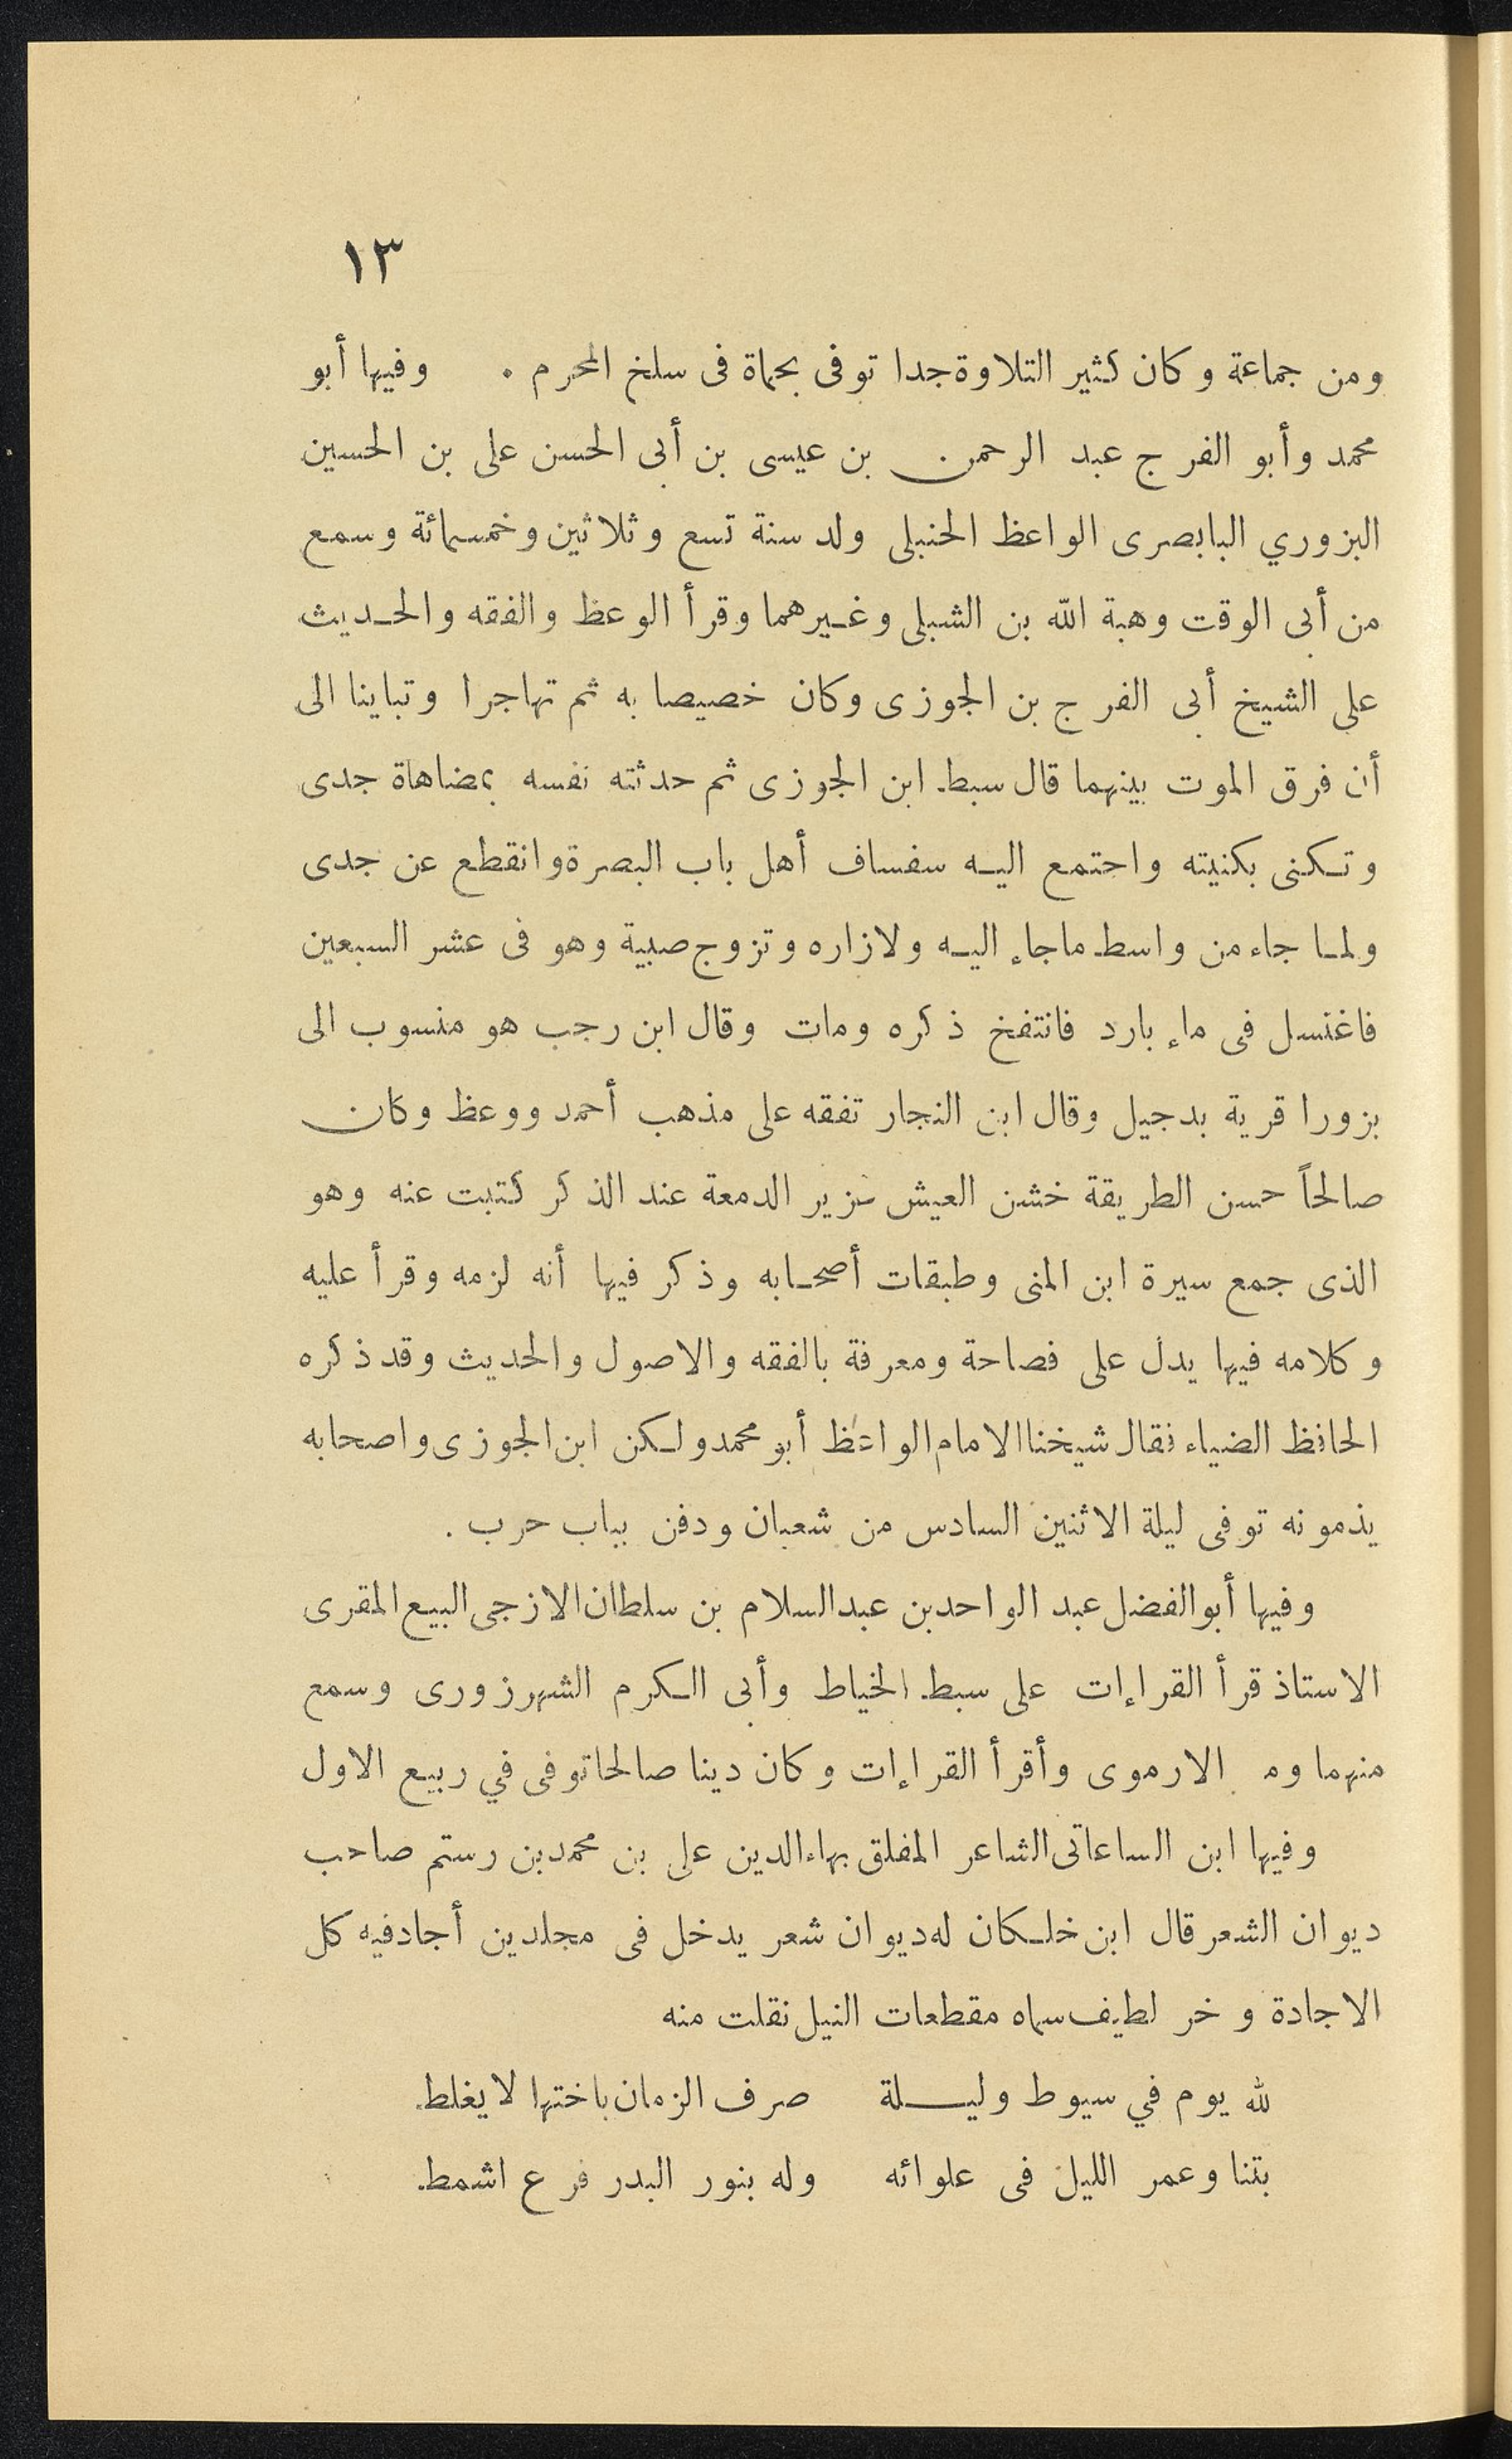 ١٣
ومن جماعة وكان كثير التلاوة جدا توفى بحماة فى سلخ المحرم . وفيها أبو
محمد وأبو الفرج عبد الرحمن بن عيسى بن أبى الحسن على بن الحسين
البزوري البابصرى الواعظ الحنبلى ولد سنة تسع وثلاثين وخمسمائة وسمع
من أبى الوقت وهبة الله بن الشبلى وغيرهما وقرأ الوعظ والفقه والحديث
على الشيخ أبى الفرج بن الجوزى وكان خصيصا به ثم تهاجرا وتباينا الى
أن فرق الموت بينهما قال سبط ابن الجوزى ثم حدثته نفسه بمضاهاة جدى
وتكنى بكنيته واجتمع اليه سفساف أهل باب البصرة وانقطع عن جدى
ولما جاء من واسط ماجاء اليه ولازاره وتزوج صبية وهو فى عشر السبعين
فاغتسل فى ماء بارد فانتفخ ذكره ومات وقال ابن رجب هو منسوب الى
بزورا قرية بدجيل وقال ابن النجار تفقه على مذهب أحمد ووعظ وكان
صالحاً حسن الطريقة خشن العيش غزير الدمعة عند الذكر كتبت عنه وهو
الذى جمع سيرة ابن المنى وطبقات أصحابه وذكر فيها أنه لزمه وقرأ عليه
وكلامه فيها يدل على فصاحة ومعرفة بالفقه والاصول والحديث وقد ذكره
الحافظ الضياء فقال شيخنا الامام الواعظ أبو محمد ولكن ابن الجوزى واصحابه
يذمونه توفى ليلة الاثنين السادس من شعبان ودفن بباب حرب .
وفيها أبو الفضل عبد الواحد بن عبد السلام بن سلطان الازجى البيع المقرى
الاستاذ قرأ القراءات على سبط الخياط وأبى الكرم الشهرزورى وسمع
منهما وم الارموى وأقرأ القراءات وكان دينا صالحا توفى في ربيع الاول
وفيها ابن الساعاتى الشاعر المفلق بهاء الدين على بن محمد بن رستم صاحب
ديوان الشعر قال ابن خلكان له ديوان شعر يدخل فى مجلدين أجاد فيه كل
الاجادة و خر لطيف سماه مقطعات النيل نقلت منه
لله يوم في سيوط وليلة صرف الزمان باختها لا يغلط
بتنا وعمر الليل فى علوائه وله بنور البدر فرع اشمط